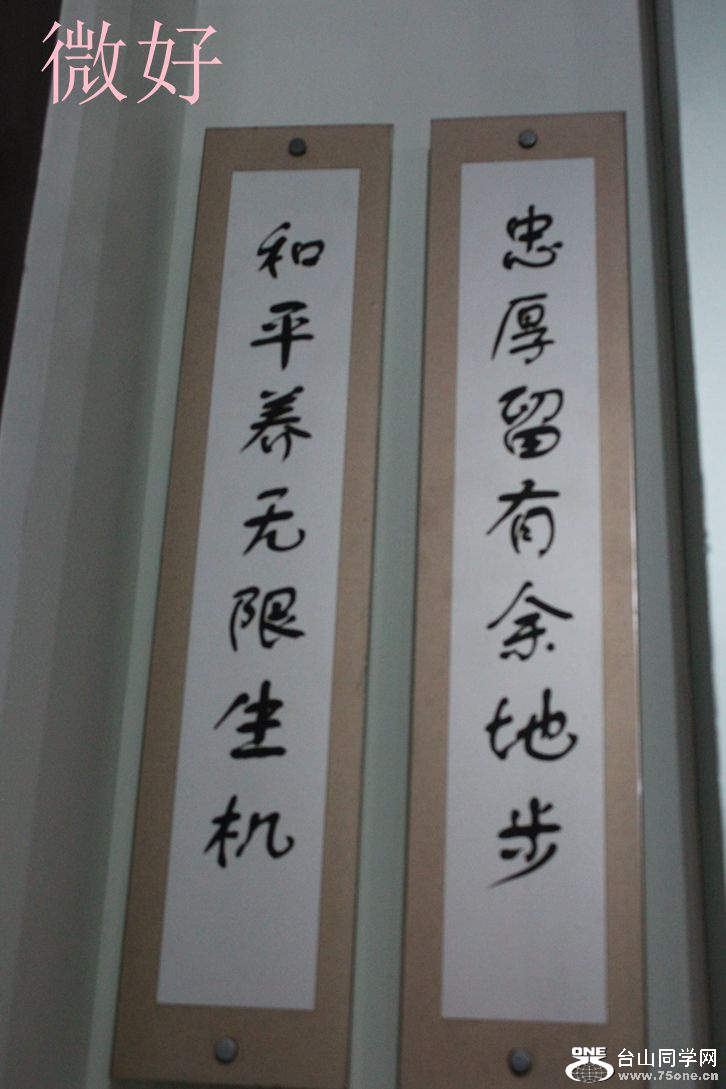 微好
忠厚留有余地步
和平养无限生机
ONE
台山同学网
www.75one.cn